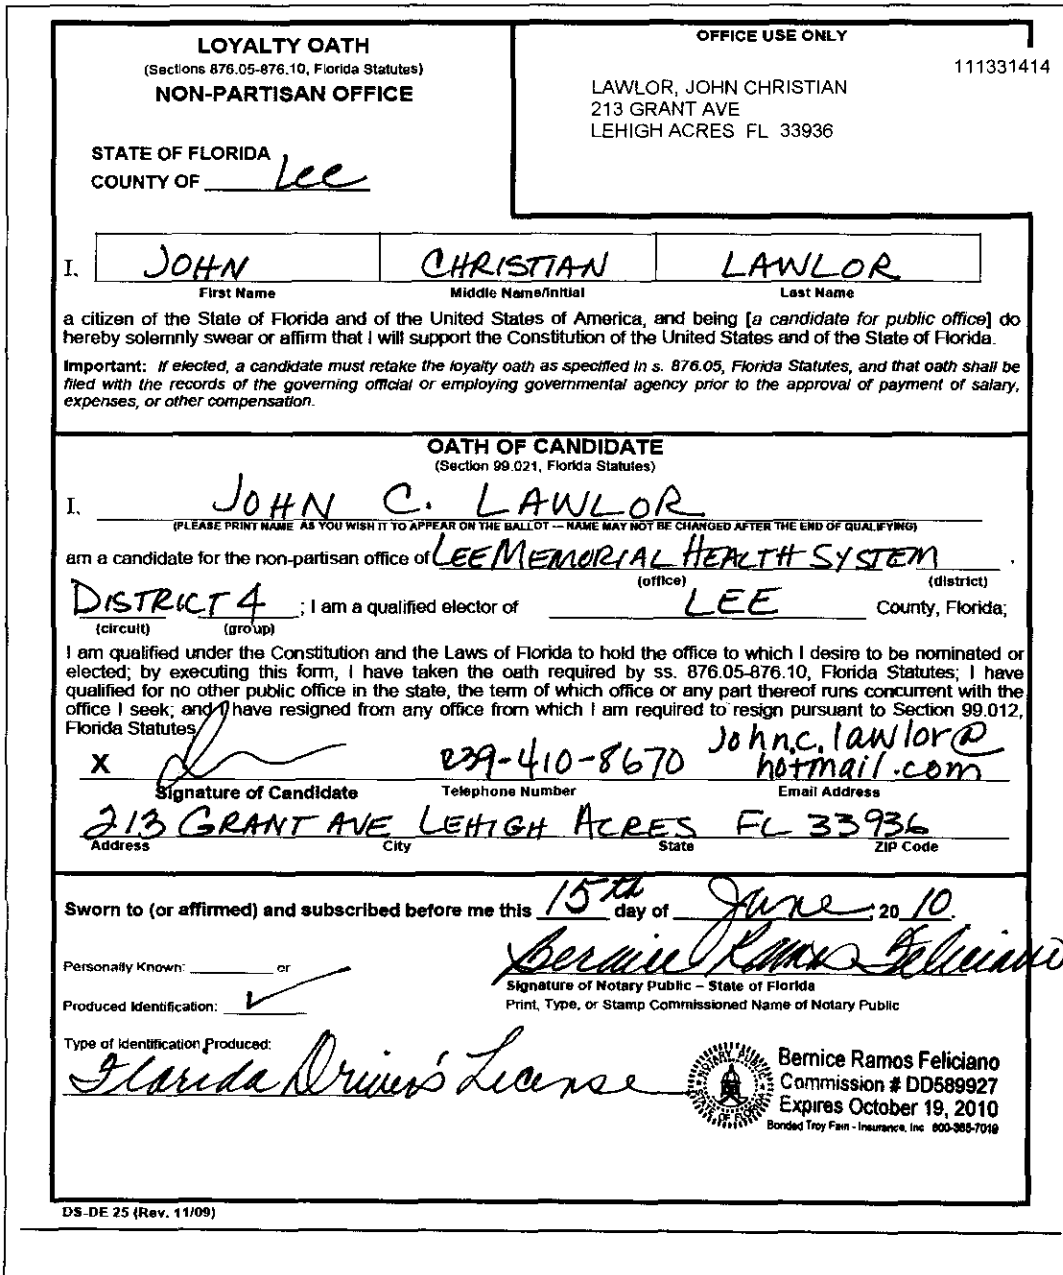 LOYALTY OATH
(Sections 876.05-876.10, Florida Statutes)
NON-PARTISAN OFFICE
STATE OF FLORIDA
COUNTY OF Lee
OFFICE USE ONLY
111331414
LAWLOR, JOHN CHRISTIAN
213 GRANT AVE
LEHIGH ACRES FL 33936
I, JOHN CHRISTIAN LAWLOR
First Name Middle Name/Initial Last Name
a citizen of the State of Florida and of the United States of America, and being [a candidate for public office] do
hereby solemnly swear or affirm that I will support the Constitution of the United States and of the State of Florida.
Important: If elected, a candidate must retake the loyalty oath as specified in s. 876.05, Florida Statutes, and that oath shall be
filed with the records of the governing official or employing governmental agency prior to the approval of payment of salary,
expenses, or other compensation.
OATH OF CANDIDATE
(Section 99.021, Florida Statutes)
I, JOHN C. LAWLOR
(PLEASE PRINT NAME AS YOU WISH IT TO APPEAR ON THE BALLOT -- NAME MAY NOT BE CHANGED AFTER THE END OF QUALIFYING)
am a candidate for the non-partisan office of LEE MEMORIAL HEALTH SYSTEM ,
(office) (district)
DISTRICT 4 ; I am a qualified elector of LEE County, Florida;
(circuit) (group)
I am qualified under the Constitution and the Laws of Florida to hold the office to which I desire to be nominated or
elected; by executing this form, I have taken the oath required by ss. 876.05-876.10, Florida Statutes; I have
qualified for no other public office in the state, the term of which office or any part thereof runs concurrent with the
office I seek; and I have resigned from any office from which I am required to resign pursuant to Section 99.012,
Florida Statutes
X 239-410-8670 John.c.lawlor@
hotmail.com
Signature of Candidate Telephone Number Email Address
213 GRANT AVE LEHIGH ACRES FL 33936
Address City State ZIP Code
Sworn to (or affirmed) and subscribed before me this 15th day of June, 20 10.
Bernice Ramos Feliciano
Personally Known: or
Signature of Notary Public – State of Florida
Produced Identification: ✓
Print, Type, or Stamp Commissioned Name of Notary Public
Type of Identification Produced:
Florida Driver's License
NOTARY PUBLIC
STATE OF FLORIDA
Bernice Ramos Feliciano
Commission # DD589927
Expires October 19, 2010
Bonded Troy Fain - Insurance, Inc 800-385-7019
DS-DE 25 (Rev. 11/09)